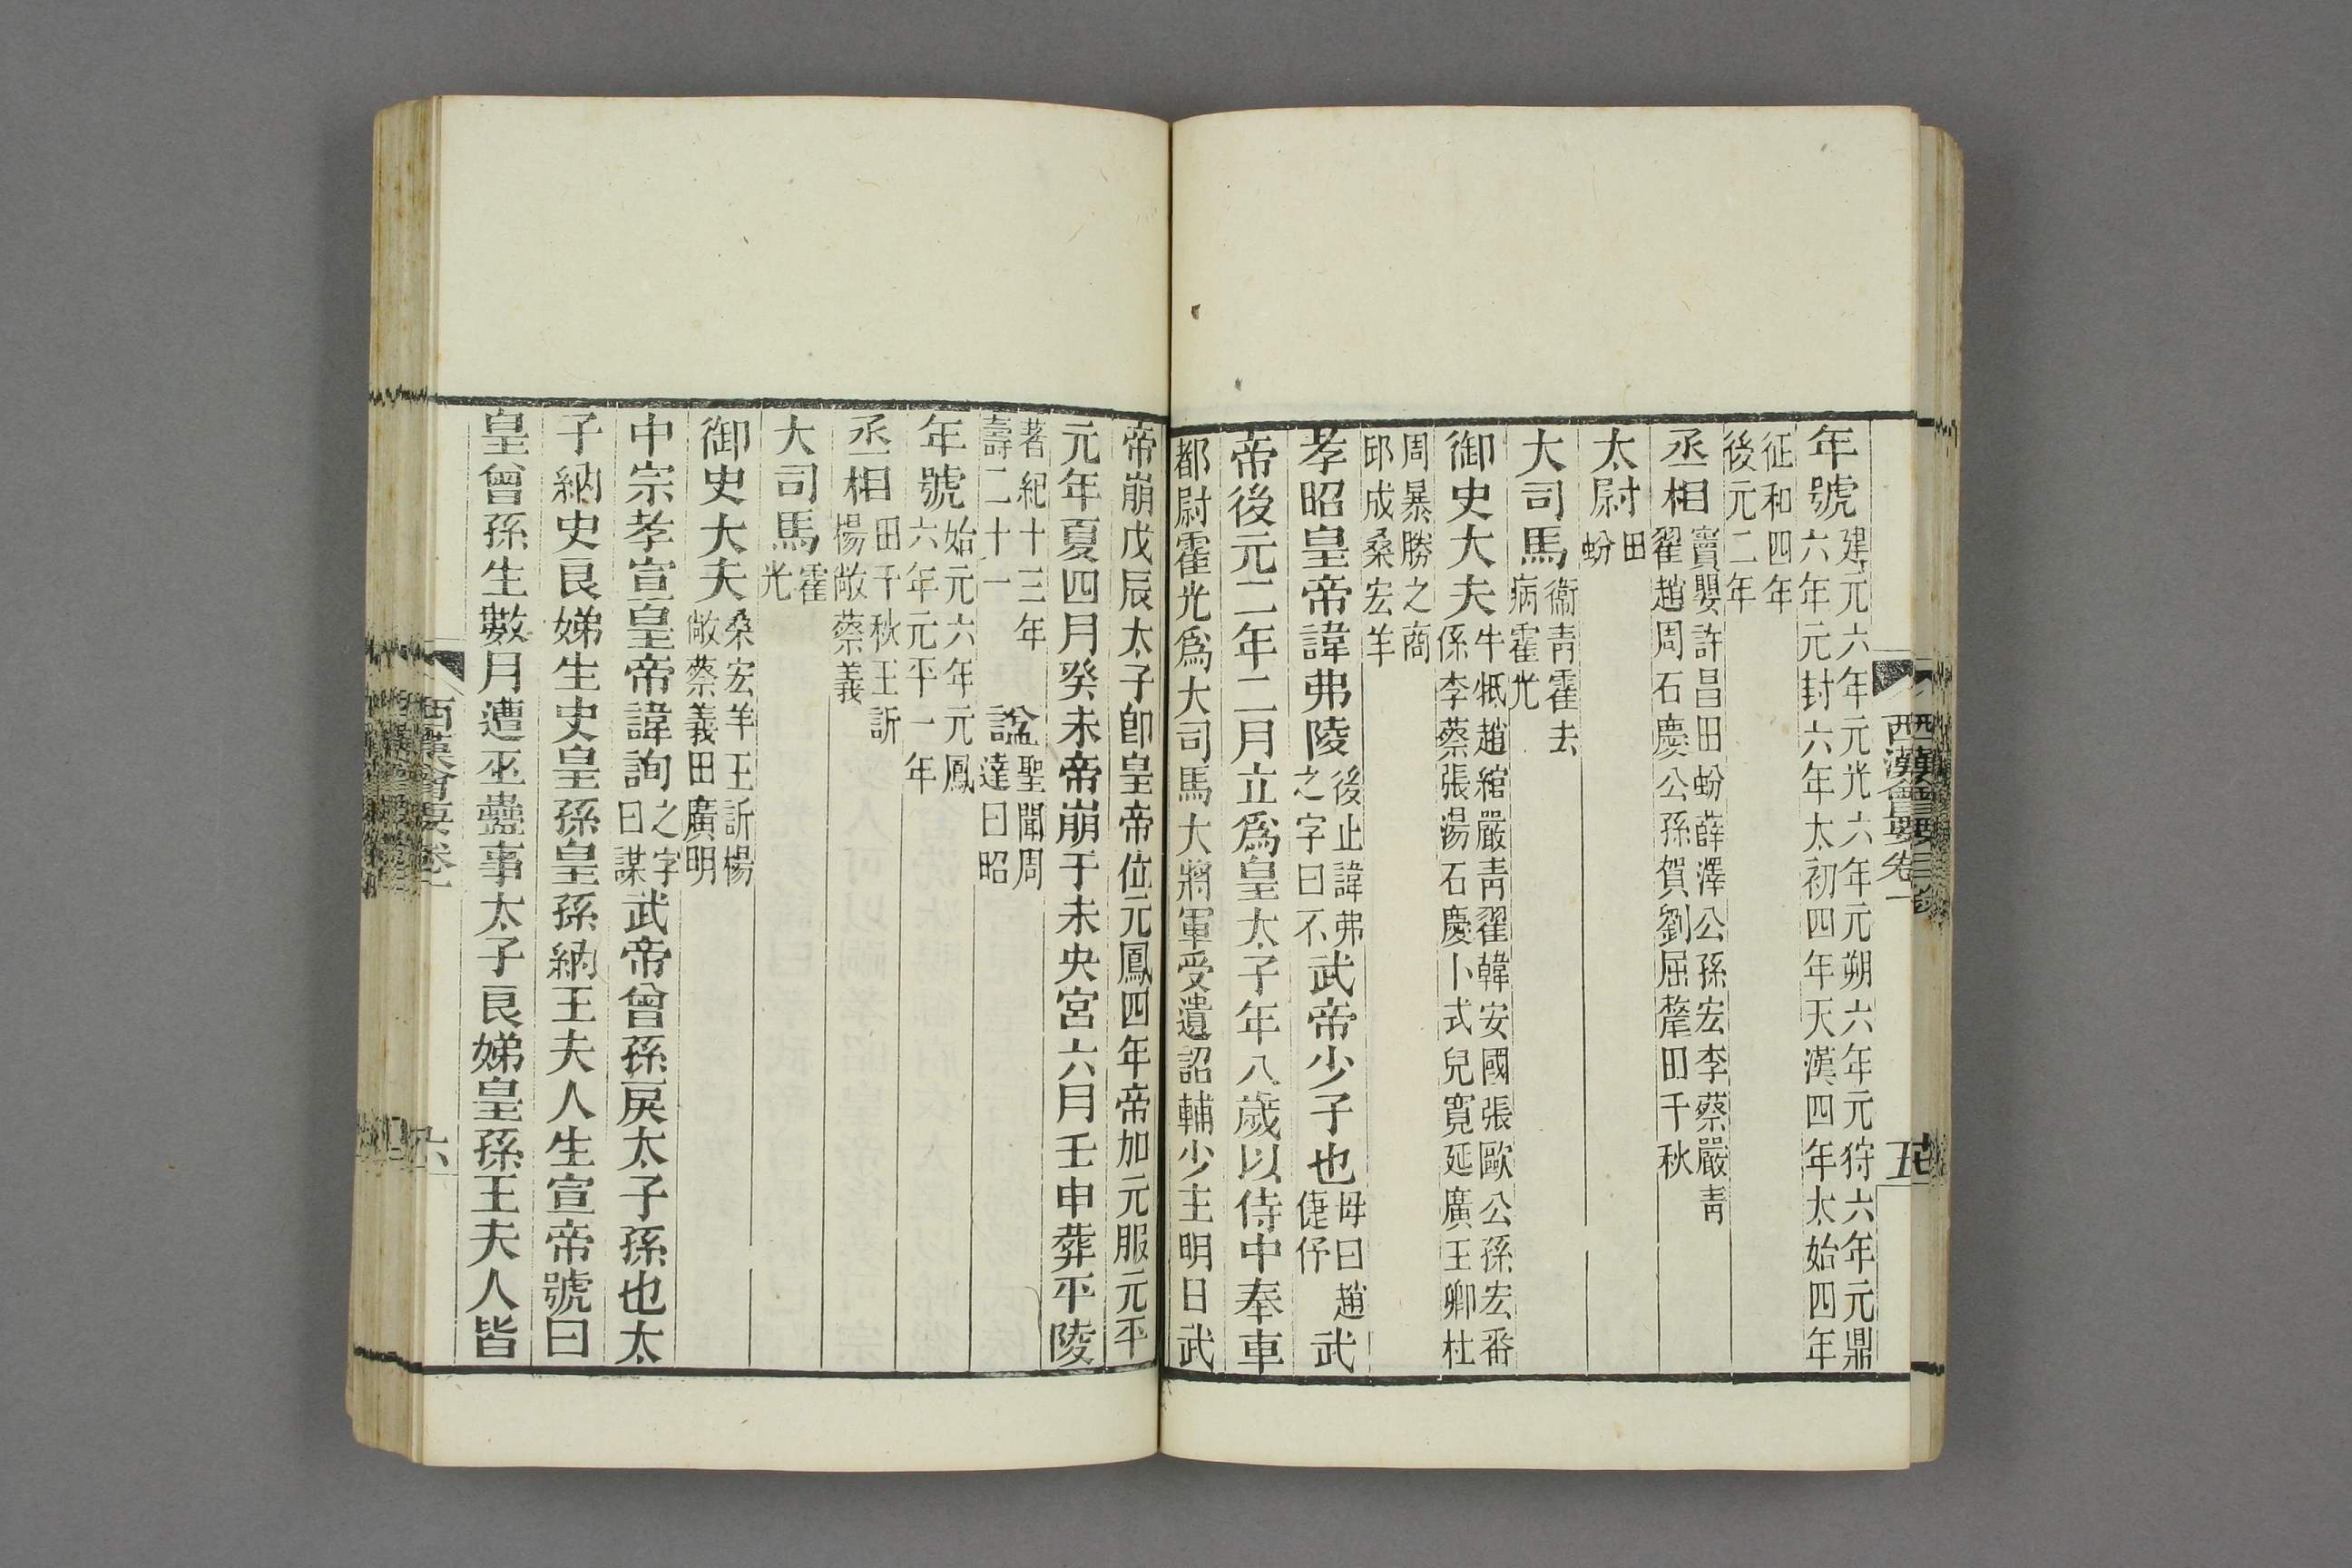 西漢會要卷一
五
年號建元六年元光六年元朔六年元狩六年元鼎
六年元封六年太初四年天漢四年太始四年
征和四年
後元二年
丞相竇嬰許昌田蚡薛澤公孫宏李蔡嚴靑
翟趙周石慶公孫賀劉屈氂田千秋
太尉田
蚡
大司馬衞靑霍去
病霍光
御史大夫牛抵趙綰嚴靑翟韓安國張歐公孫宏番
係李蔡張湯石慶卜式兒寬延廣王卿杜
周暴勝之商
邱成桑宏羊
孝昭皇帝諱弗陵後止諱弗
之字曰不武帝少子也母曰趙
倢伃武
帝後元二年二月立爲皇太子年八歲以侍中奉車
都尉霍光爲大司馬大將軍受遺詔輔少主明日武
帝崩戊辰太子卽皇帝位元鳳四年帝加元服元平
元年夏四月癸未帝崩于未央宮六月壬申葬平陵
著紀十三年
壽二十一
諡聖聞周
達曰昭
年號始元六年元鳳
六年元平一年
丞相田千秋王訢
楊敞蔡義
大司馬霍
光
御史大夫桑宏羊王訢楊
敞蔡義田廣明
中宗孝宣皇帝諱詢之字
曰謀武帝曾孫戾太子孫也太
子納史良娣生史皇孫皇孫納王夫人生宣帝號曰
皇曾孫生數月遭巫蠱事太子良娣皇孫王夫人皆
西漢會要卷一
六